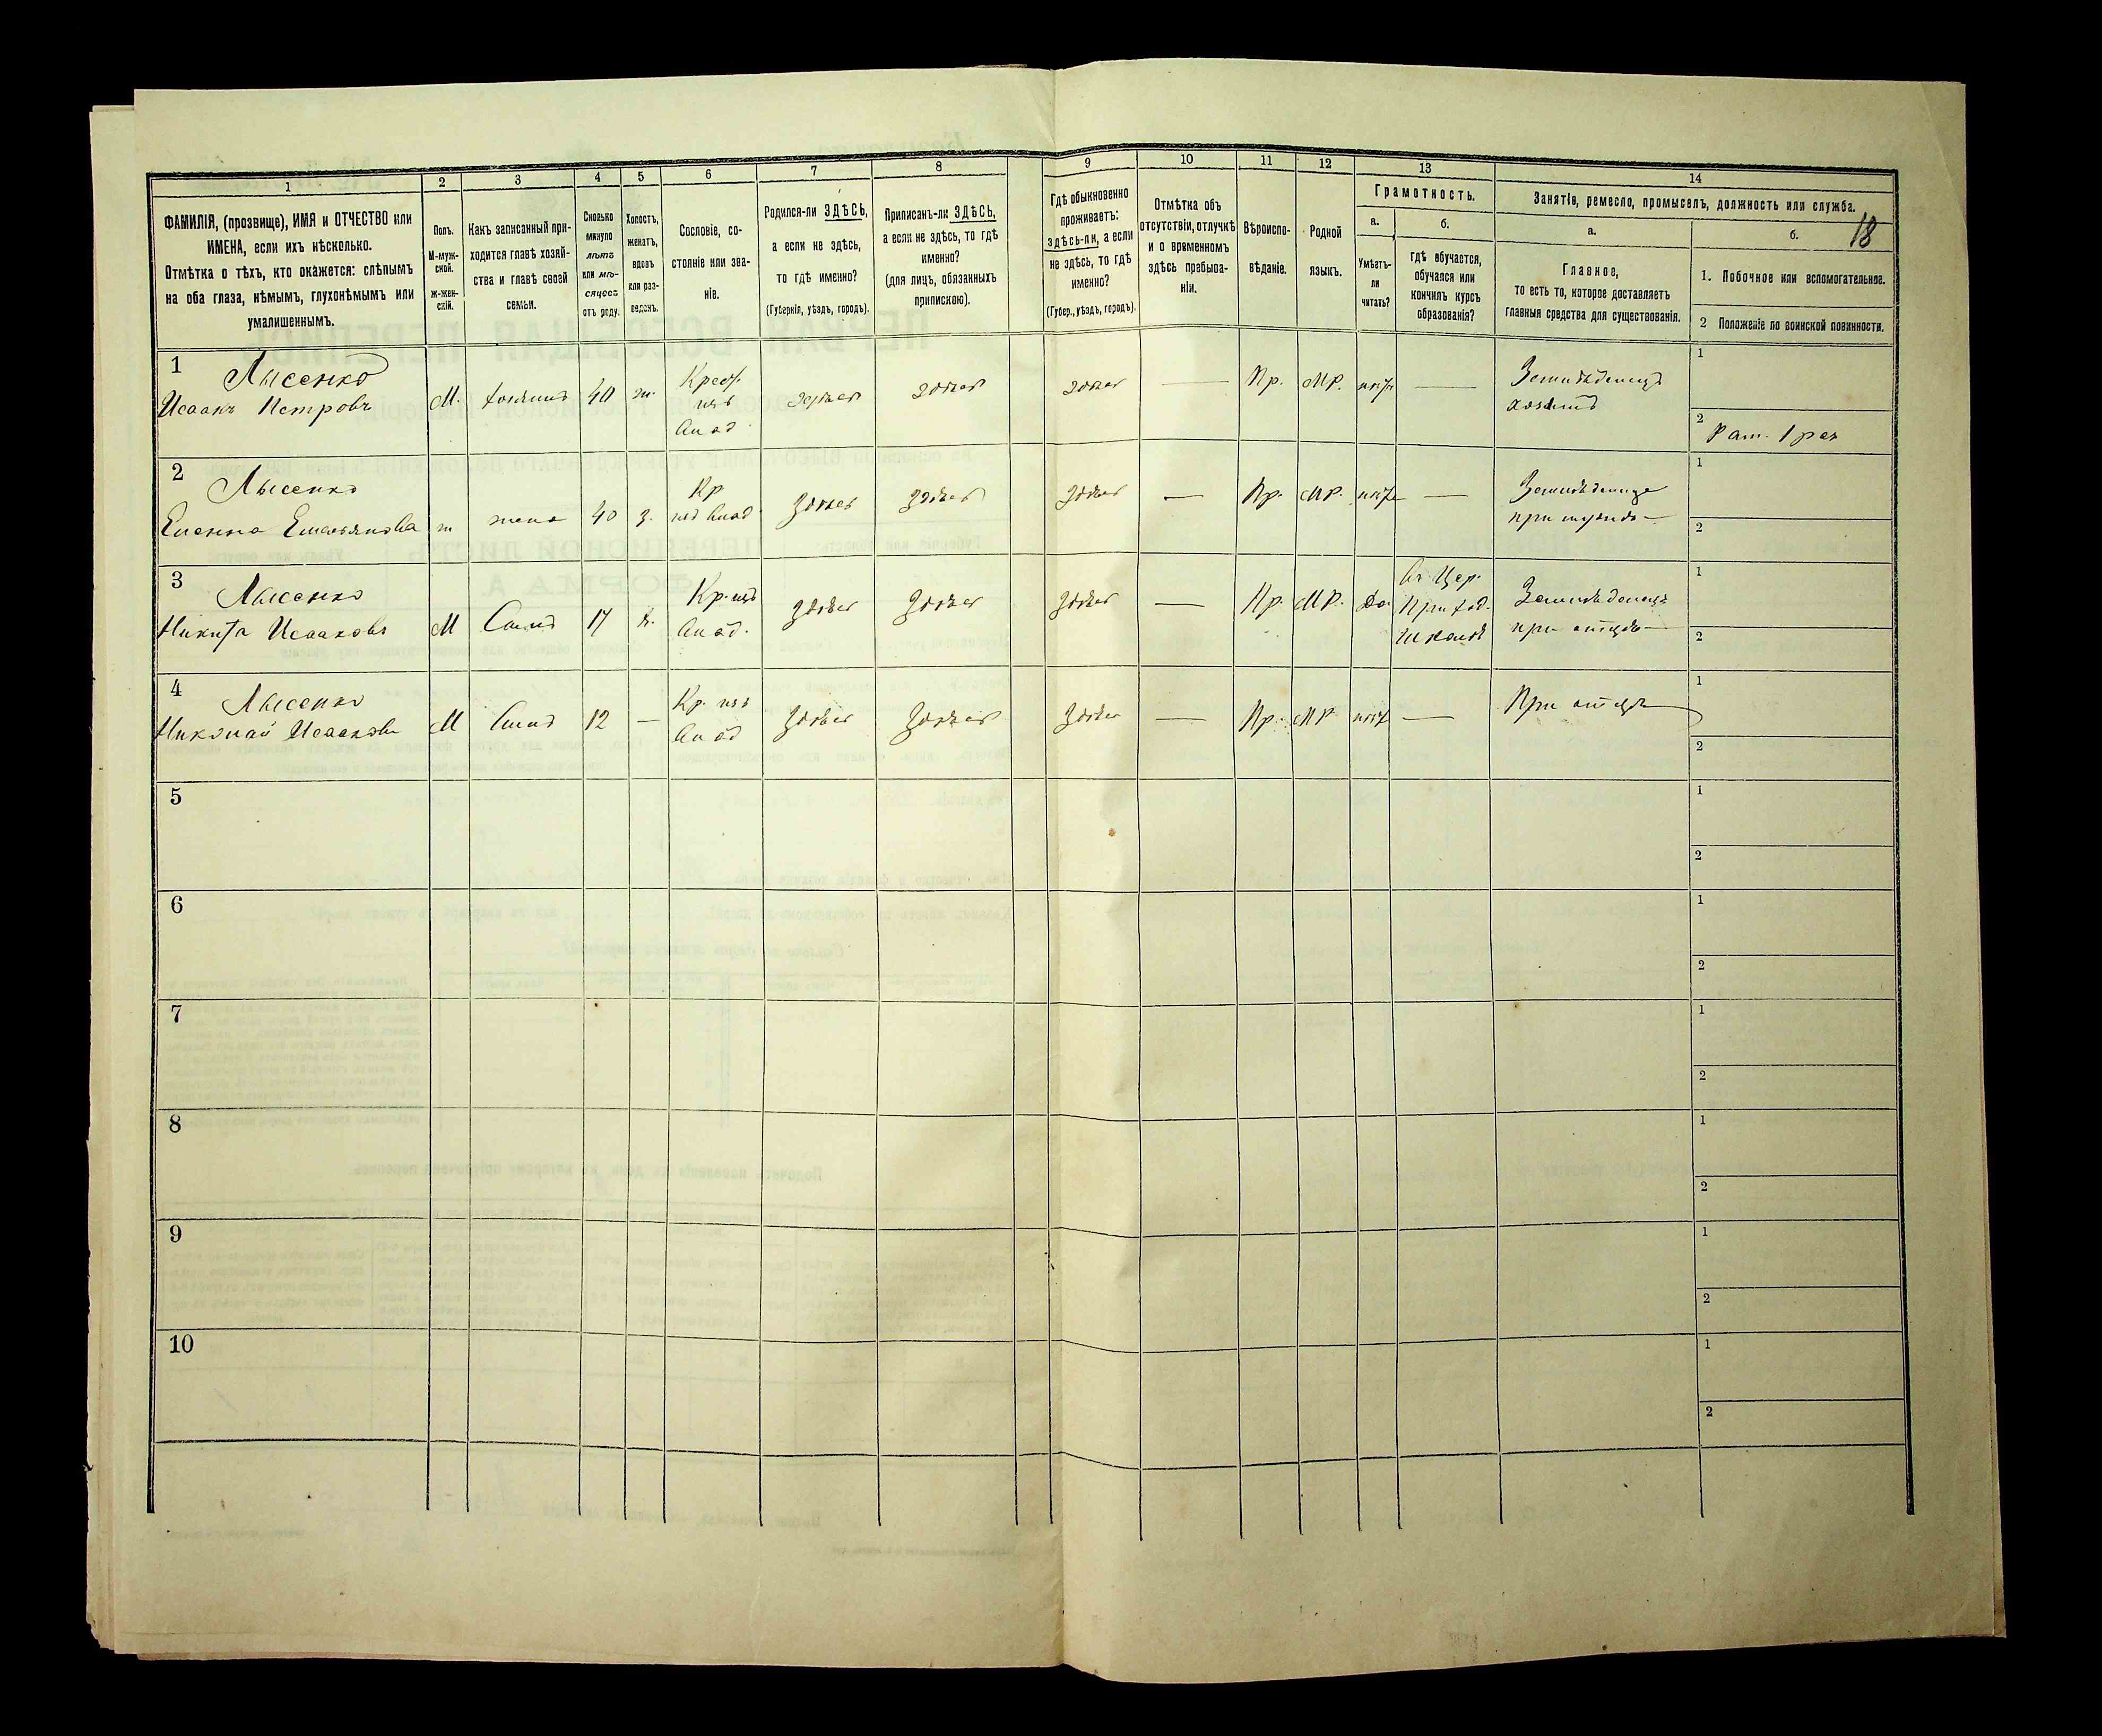 1 2 3 4 5 6 7 8 9 10 11 12 13 14
18
ФАМИЛІЯ, (прозвище), ИМЯ и ОТЧЕСТВО или
ИМЕНА, если ихъ нѣсколько.
Отмѣтка о тѣхъ, кто окажется: слѣпымъ
на оба глаза, нѣмымъ, глухонѣмымъ или
умалишеннымъ.
Полъ.
М-муж-
ской.
ж-жен-
скій.
Какъ записанный при-
ходится главѣ хозяй-
ства и главѣ своей
семьи.
Сколько
минуло
лѣтъ
или мѣ-
сяцевъ
отъ роду.
Холостъ,
женатъ,
вдовъ
или раз-
веденъ.
Сословіе, со-
стояніе или зва-
ніе.
Родился-ли ЗДѢСЬ,
а если не здѣсь,
то гдѣ именно?
(Губернія, уѣздъ, городъ).
Приписанъ-ли ЗДѢСЬ,
а если не здѣсь, то гдѣ
именно?
(для лицъ, обязанныхъ
припискою).
Гдѣ обыкновенно
проживаетъ:
здѣсь-ли, а если
не здѣсь, то гдѣ
именно?
(Губер., уѣздъ, городъ).
Отмѣтка объ
отсутствіи, отлучкѣ
и о временномъ
здѣсь пребыва-
ніи.
Вѣроиспо-
вѣданіе.
Родной
языкъ.
Грамотность.
а.
Умѣетъ-
ли
читать?
б.
гдѣ обучается,
обучался или
кончилъ курсъ
образованія?
Занятіе, ремесло, промыселъ, должность или служба.
а.
Главное,
то есть то, которое доставляетъ
главныя средства для существованія.
б.
1. Побочное или вспомогательное.
2 Положеніе по воинской повинности.
1
Лысенко
Исаакъ Петровъ
М.
хозяинъ
40
ж.
Крест.
изъ
здѣсь
здѣсь
здѣсь
—
Пр.
МР.
нѣтъ
—
Земледѣлецъ
хозяинъ
1
2
Рат. 1 раз
2
Лысенко
Емельянова
ж
жена
40
з.
Кр
изъ
здѣсь
здѣсь
здѣсь
—
Пр.
МР.
нѣтъ
—
при мужѣ
1
2
3
Лысенко
Никита Исааковъ
М
Сынъ
17
х.
Кр. изъ
здѣсь
здѣсь
здѣсь
—
Пр.
МР.
Да
Цер.
Приход.
Школѣ
Земледѣлецъ
при отцѣ
1
2
4
Лысенко
Николай Исааковъ
М
Сынъ
12
—
Кр. изъ
здѣсь
здѣсь
здѣсь
—
Пр.
МР
нѣтъ
—
При отцѣ
1
2
5
1
2
6
1
2
7
1
2
8
1
2
9
1
2
10
1
2